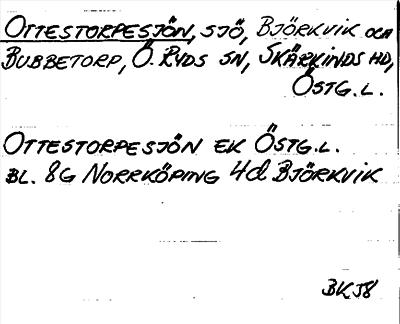 OTTESTORPESJÖN, SJÖ, BJÖRKVIK OCH
BUBBETORP, Ö. RYDS SN, SKÄRKINDS HD,
ÖSTG. L.
OTTESTORPESJÖN EK ÖSTG. L.
BL. 8G NORRKÖPING 4d BJÖRKVIK
BKJ8